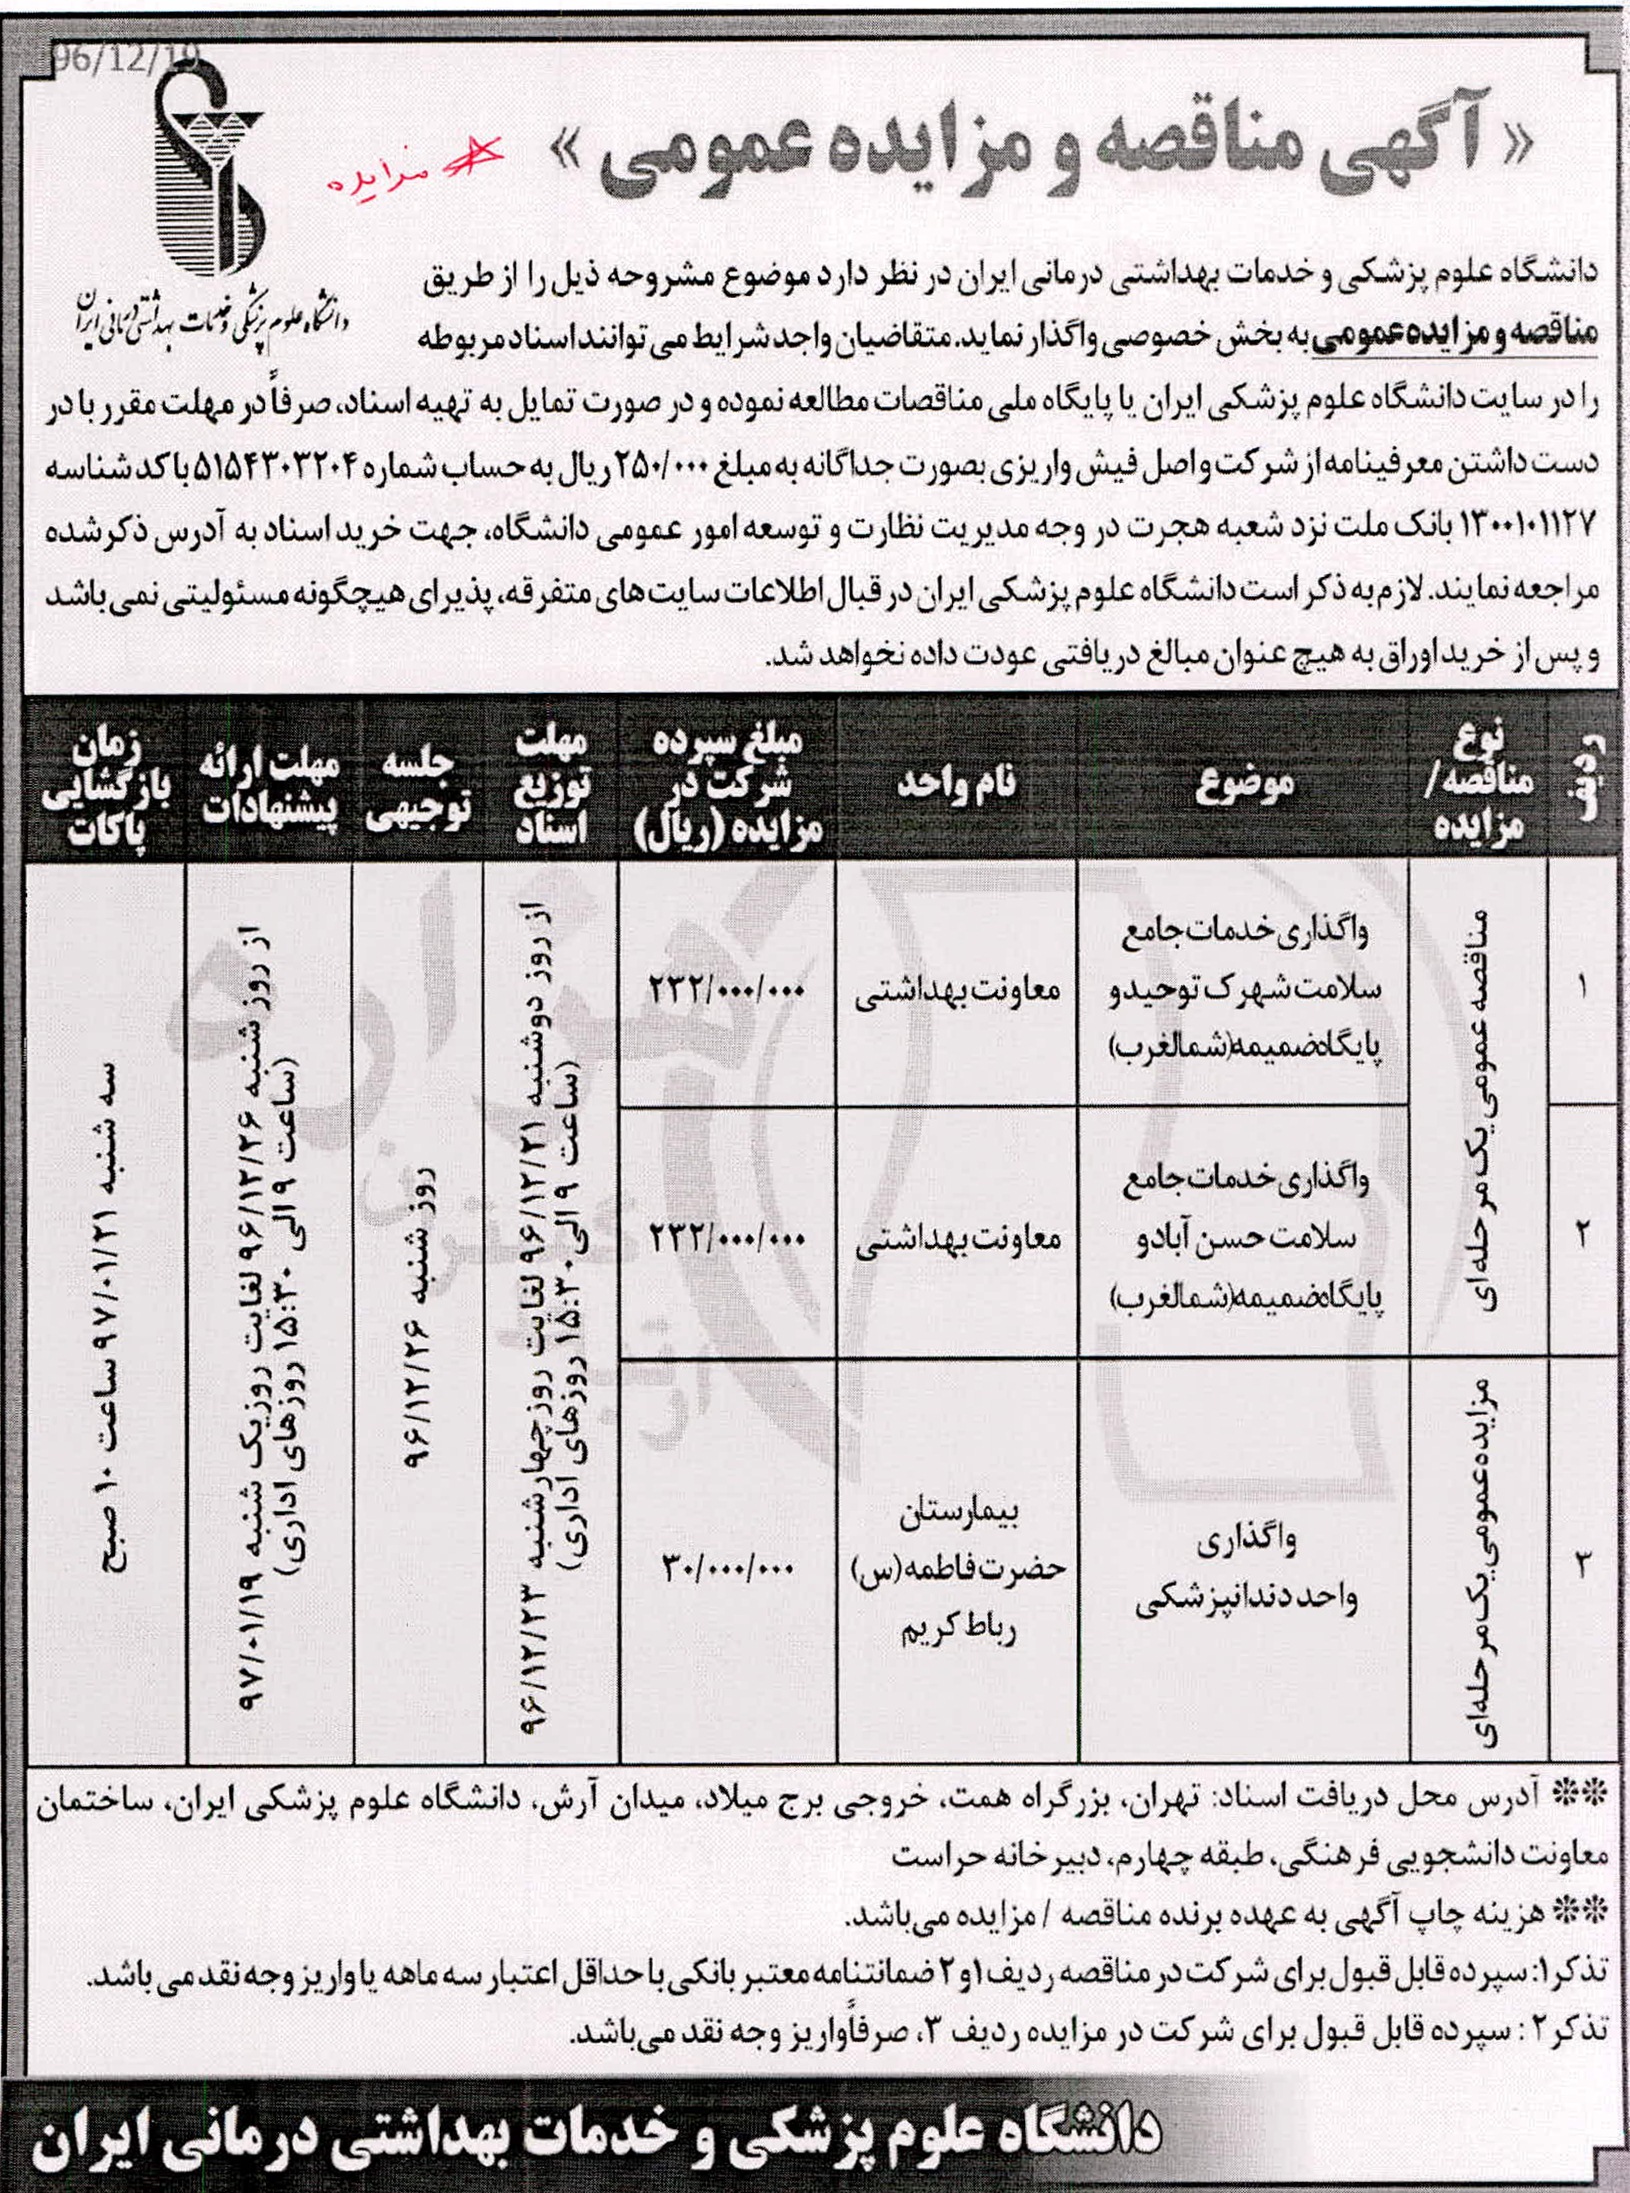 96/12/19
« آگهی مناقصه و مزایده عمومی »
مزایده
دانشگاه علوم پزشکی و خدمات بهداشتی درمانی ایران
دانشگاه علوم پزشکی و خدمات بهداشتی درمانی ایران در نظر دارد موضوع مشروحه ذیل را از طریق
مناقصه و مزایده عمومی به بخش خصوصی واگذار نماید. متقاضیان واجد شرایط می توانند اسناد مربوطه
را در سایت دانشگاه علوم پزشکی ایران یا پایگاه ملی مناقصات مطالعه نموده و در صورت تمایل به تهیه اسناد، صرفاً در مهلت مقرر با در
دست داشتن معرفینامه از شرکت و اصل فیش واریزی بصورت جداگانه به مبلغ ۲۵۰/۰۰۰ ریال به حساب شماره ۵۱۵۴۳۰۳۲۰۴ با کد شناسه
۱۳۰۰۱۰۱۱۲۷ بانک ملت نزد شعبه هجرت در وجه مدیریت نظارت و توسعه امور عمومی دانشگاه، جهت خرید اسناد به آدرس ذکر شده
مراجعه نمایند. لازم به ذکر است دانشگاه علوم پزشکی ایران در قبال اطلاعات سایت های متفرقه، پذیرای هیچگونه مسئولیتی نمی باشد
و پس از خرید اوراق به هیچ عنوان مبالغ دریافتی عودت داده نخواهد شد.
ردیف
نوع
مناقصه/
مزایده
موضوع
نام واحد
مبلغ سپرده
شرکت در
مزایده (ریال)
مهلت
توزیع
اسناد
جلسه
توجیهی
مهلت ارائه
پیشنهادات
زمان
بازگشایی
پاکات
۱
مناقصه عمومی یک مرحله ای
واگذاری خدمات جامع
سلامت شهرک توحید و
پایگاه ضمیمه (شمالغرب)
معاونت بهداشتی
۲۳۲/۰۰۰/۰۰۰
از روز دوشنبه ۹۶/۱۲/۲۱ لغایت روز چهارشنبه ۹۶/۱۲/۲۳
(ساعت ۹ الی ۱۵:۳۰ روزهای اداری)
روز شنبه ۹۶/۱۲/۲۶
از روز شنبه ۹۶/۱۲/۲۶ لغایت روز یک شنبه ۹۷/۰۱/۱۹
(ساعت ۹ الی ۱۵:۳۰ روزهای اداری)
سه شنبه ۹۷/۰۱/۲۱ ساعت ۱۰ صبح
۲
واگذاری خدمات جامع
سلامت حسن آباد و
پایگاه ضمیمه (شمالغرب)
معاونت بهداشتی
۲۳۲/۰۰۰/۰۰۰
۳
مزایده عمومی یک مرحله ای
واگذاری
واحد دندانپزشکی
بیمارستان
حضرت فاطمه (س)
رباط کریم
۳۰/۰۰۰/۰۰۰
** آدرس محل دریافت اسناد: تهران، بزرگراه همت، خروجی برج میلاد، میدان آرش، دانشگاه علوم پزشکی ایران، ساختمان
معاونت دانشجویی فرهنگی، طبقه چهارم، دبیرخانه حراست
** هزینه چاپ آگهی به عهده برنده مناقصه / مزایده می باشد.
تذکر۱: سپرده قابل قبول برای شرکت در مناقصه ردیف ۱و ۲ ضمانتنامه معتبر بانکی با حداقل اعتبار سه ماهه یا واریز وجه نقد می باشد.
تذکر۲ : سپرده قابل قبول برای شرکت در مزایده ردیف ۳، صرفاً واریز وجه نقد می باشد.
دانشگاه علوم پزشکی و خدمات بهداشتی درمانی ایران